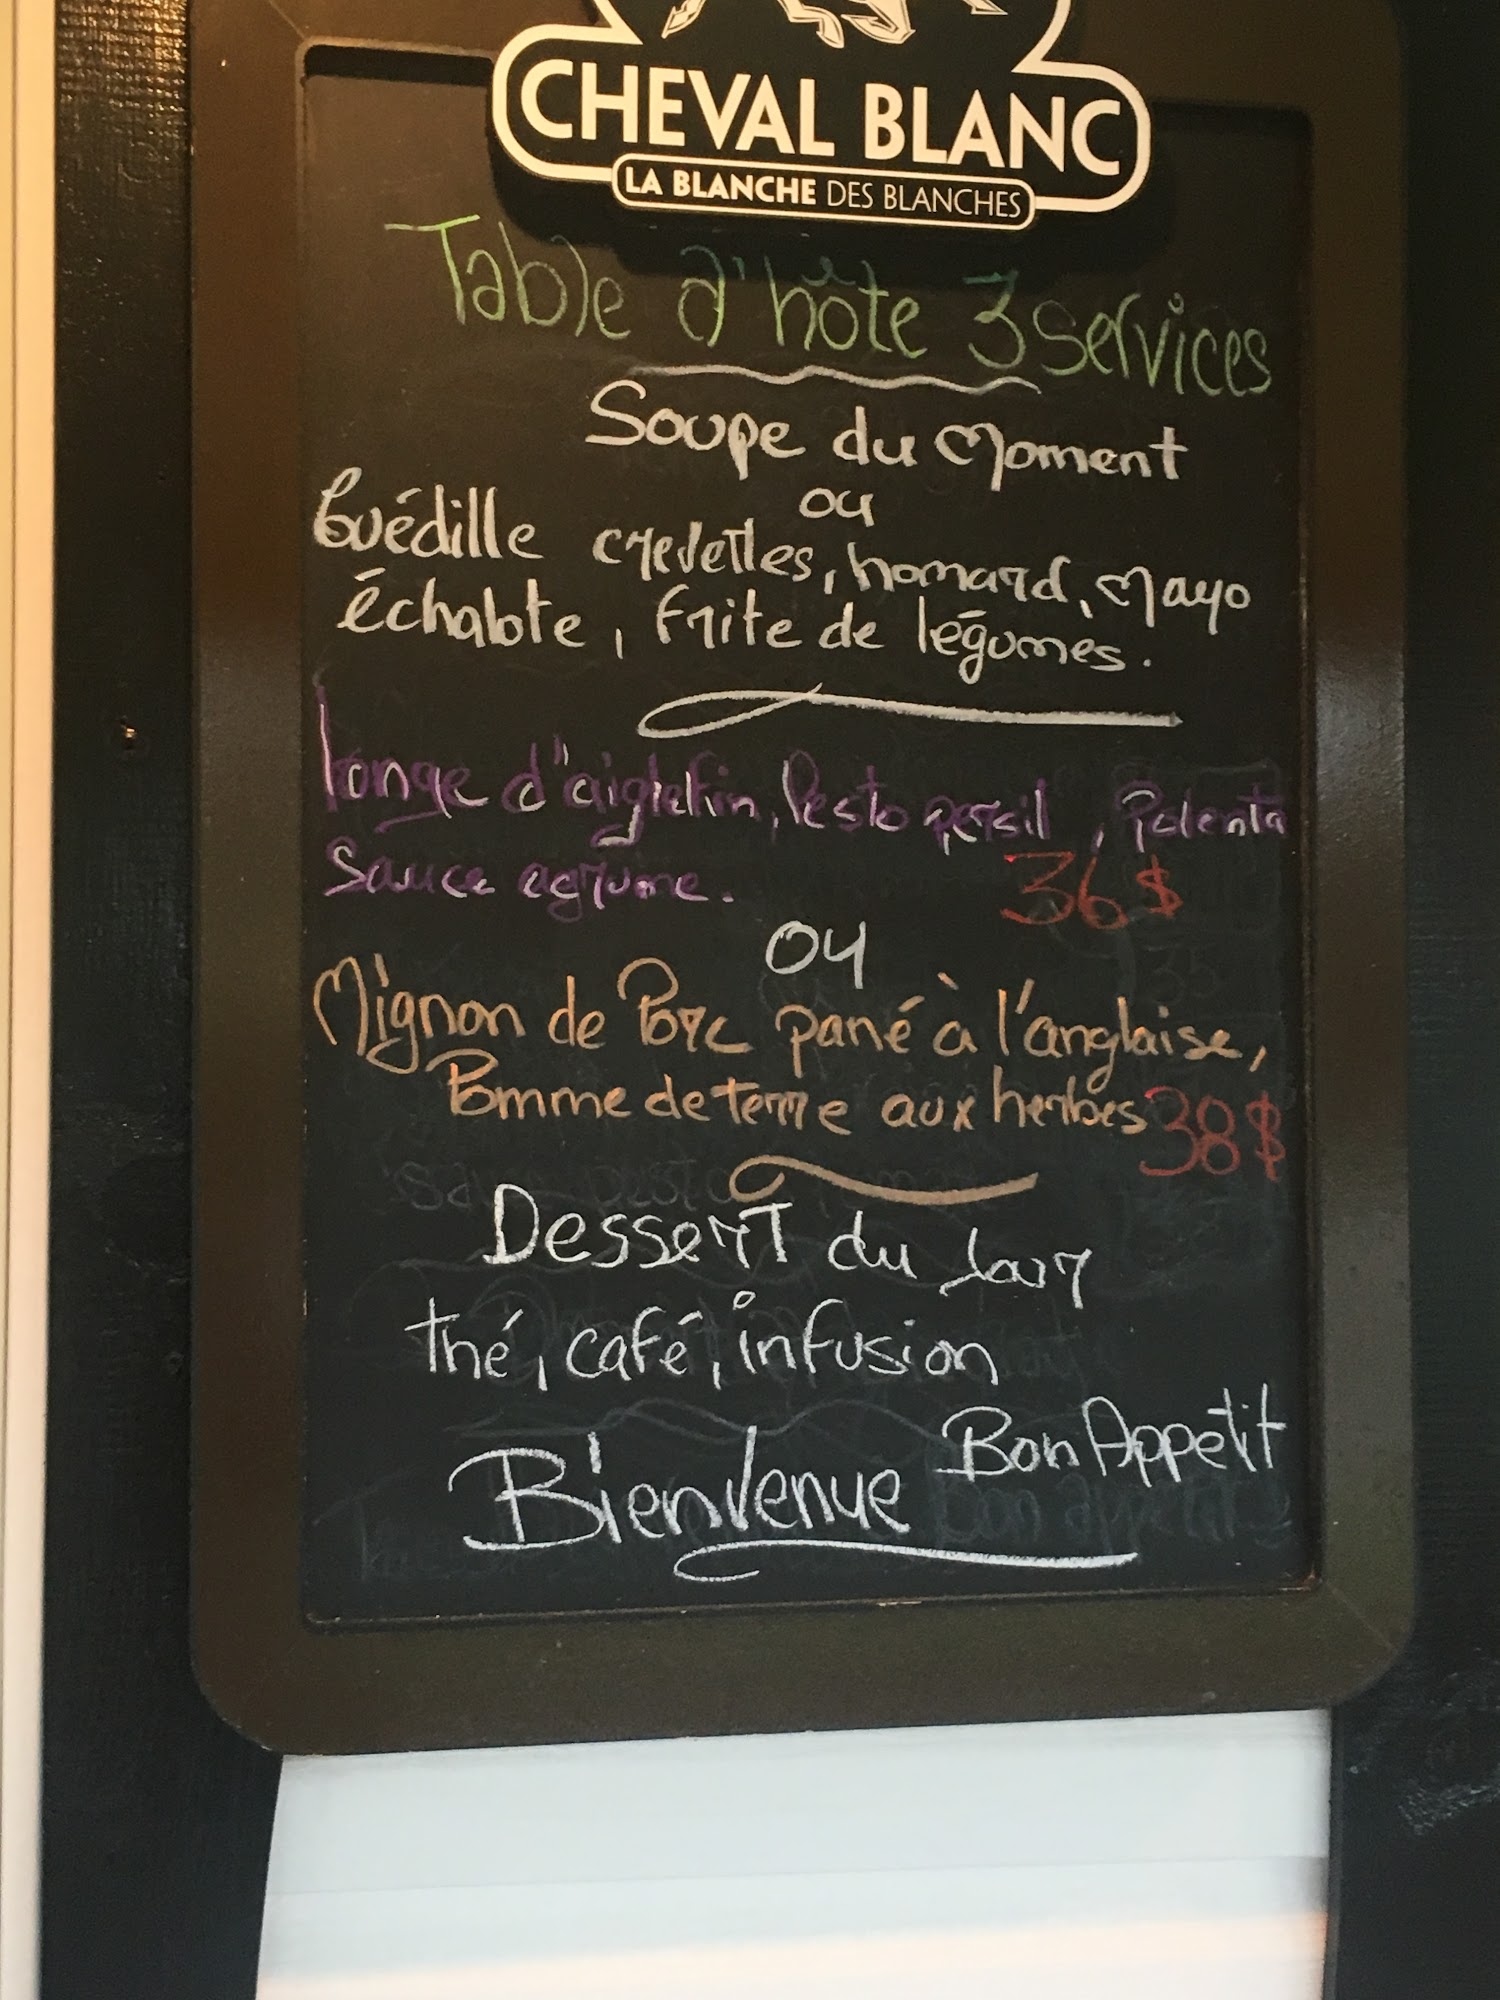 CHEVAL BLANC
LA BLANCHE DES BLANCHES
Table d'hôte 3 services
Soupe du Moment
ou
Guédille crevettes, homard, Mayo
échalote, frite de légumes.
longe d'aiglefin, Pesto persil, Polenta
Sauce agrume. 36$
ou
Mignon de Porc pané à l'anglaise,
Pomme de terre aux herbes 38$
Dessert du jour
thé, café, infusion
Bon Appétit
Bienvenue